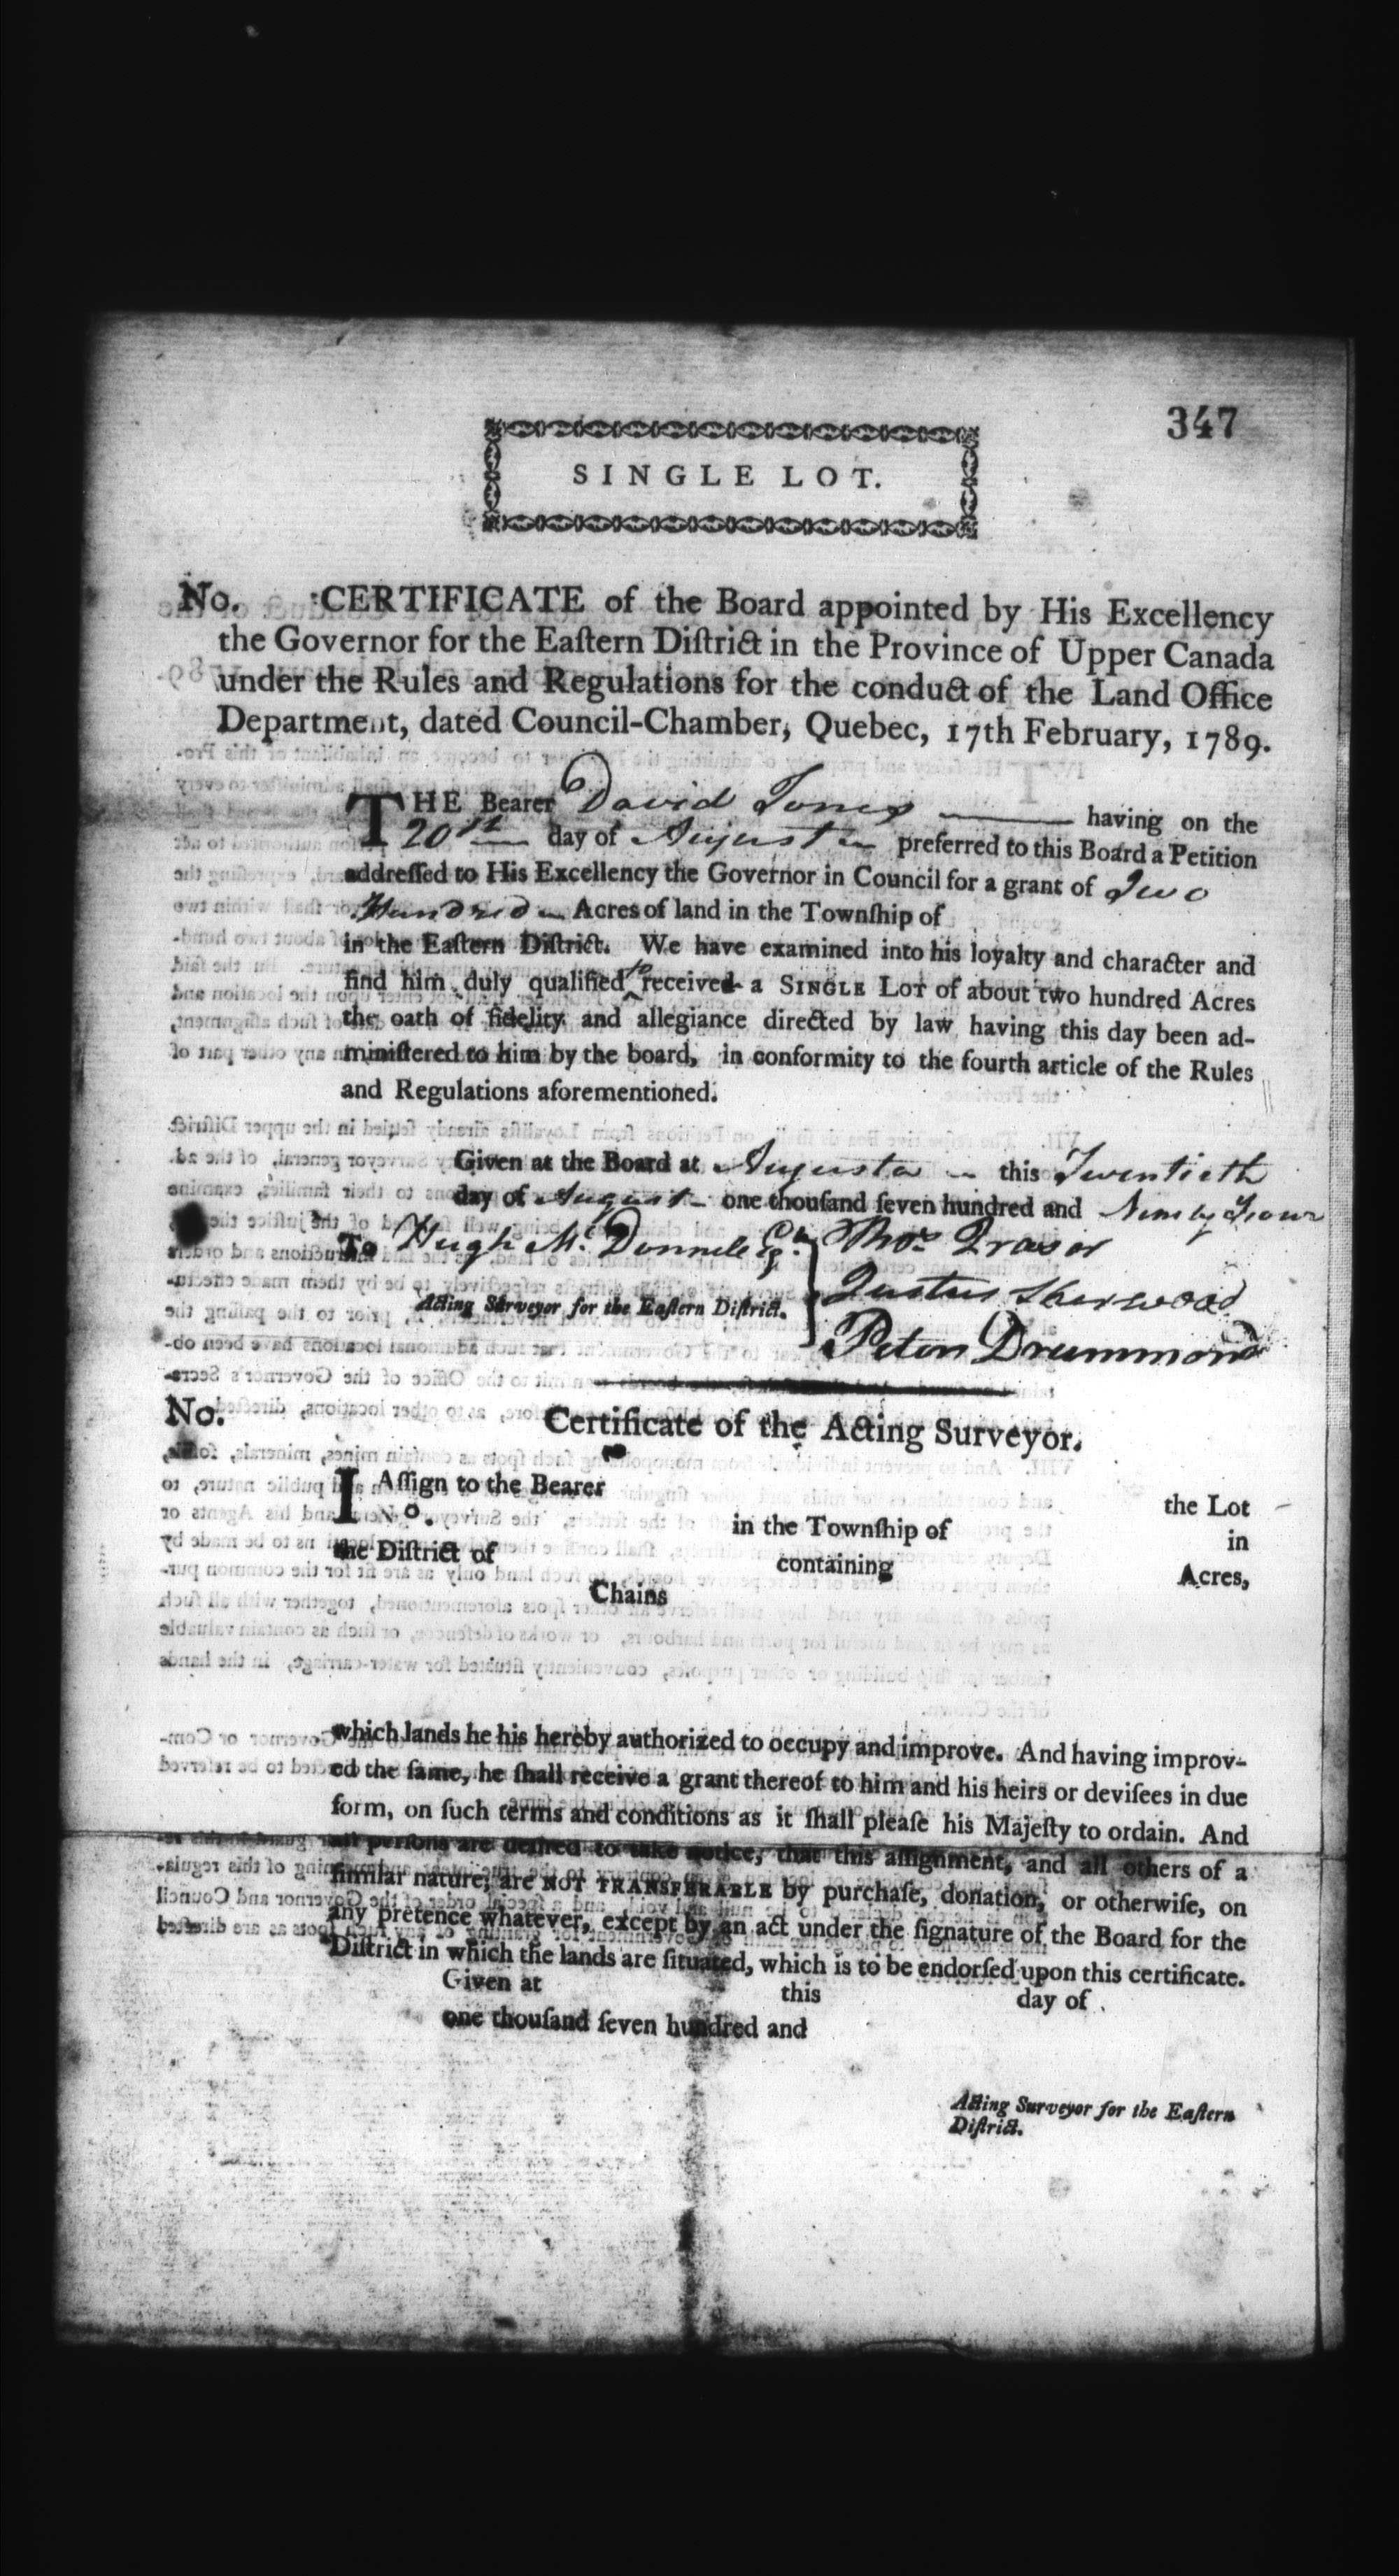 347
SINGLE LOT.
No. CERTIFICATE of the Board appointed by His Excellency
the Governor for the Eaſtern Diſtrict in the Province of Upper Canada
under the Rules and Regulations for the conduct of the Land Office
Department, dated Council-Chamber, Quebec, 17th February, 1789.
THE Bearer David Jones having on the
20th day of August preferred to this Board a Petition
addreſſed to His Excellency the Governor in Council for a grant of Two
Hundred Acres of land in the Townſhip of
in the Eaſtern Diſtrict. We have examined into his loyalty and character and
find him duly qualified to received a SINGLE LOT of about two hundred Acres
the oath of fidelity and allegiance directed by law having this day been ad-
miniſtered to him by the board, in conformity to the fourth article of the Rules
and Regulations aforementioned.
Given at the Board at Augusta this Twentieth
day of August one thouſand ſeven hundred and Ninety Four
To Hugh Mc Donnell Esqr. Thos Fraser
Justus Sherwood
Acting Surveyor for the Eaſtern Diſtrict.
Peter Drummond
No. Certificate of the Acting Surveyor.
I Aſſign to the Bearer the Lot
No. in the Townſhip of in
the Diſtrict of containing Acres,
Chains
which lands he his hereby authorized to occupy and improve. And having improv-
ed the ſame, he ſhall receive a grant thereof to him and his heirs or deviſees in due
form, on ſuch terms and conditions as it ſhall pleaſe his Majeſty to ordain. And
all perſons are deſired to take notice, that this aſſignment, and all others of a
ſimilar nature, are NOT TRANSFERABLE by purchaſe, donation, or otherwiſe, on
any pretence whatever, except by an act under the ſignature of the Board for the
Diſtrict in which the lands are ſituated, which is to be endorſed upon this certificate.
Given at this day of
one thouſand ſeven hundred and
Acting Surveyor for the Eaſtern
Diſtrict.